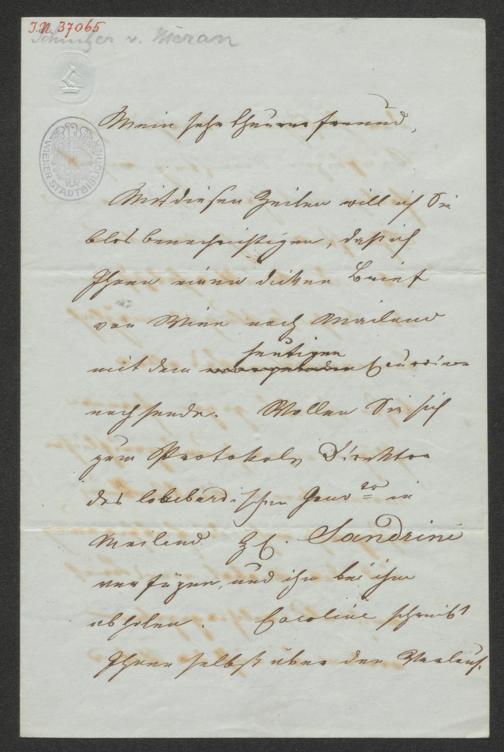 I.N. 37065
Schnitzer v. Meran
WIENER STADTBIBLIOTHEK
Mein sehr theurer Freund,
Mit diesen Zeilen will ich Sie
blos benachrichtigen, daß ich
Ihnen einen dicken Brief
von Wien nach Mailand
heutigen
mit dem Courier
nachsende. Wollen Sie sich
zum Protokolls Direktor
des lombardischen Gouv in
Mailand H. Sandrini
verfügen, und ihn bei ihm
abholen. Caroline schreibt
Ihnen selbst über den Verlauf